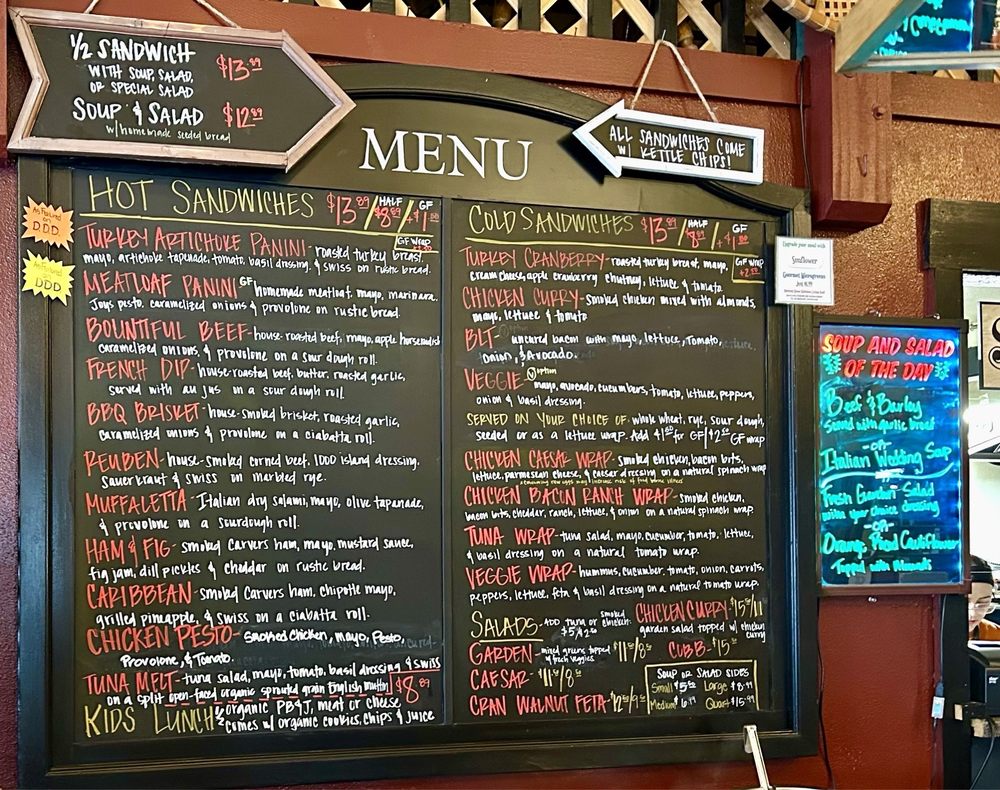 1/2 SANDWICH $13.89
WITH SOUP, SALAD,
OR SPECIAL SALAD
SOUP & SALAD $12.89
w/homemade seeded bread
MENU
ALL SANDWICHES COME
W/ KETTLE CHIPS!
As featured on
DDD
As featured on
DDD
HOT SANDWICHES $13.89/HALF $8.89/GF +$1.00
GF WRAP
TURKEY ARTICHOKE PANINI- roasted turkey breast,
mayo, artichoke tapenade, tomato, basil dressing, & swiss on rustic bread.
MEATLOAF PANINI GF homemade meatloaf, mayo, marinara,
Joy's pesto, caramelized onions & provolone on rustic bread.
BOUNTIFUL BEEF- house-roasted beef, mayo, apple horseradish
caramelized onions, & provolone on a sour dough roll.
FRENCH DIP- house-roasted beef, butter, roasted garlic,
served with au jus on a sour dough roll.
BBQ BRISKET- house-smoked brisket, roasted garlic,
caramelized onions & provolone on a ciabatta roll.
REUBEN- house-smoked corned beef, 1000 island dressing,
sauerkraut & swiss on marbled rye.
MUFFALETTA- Italian dry salami, mayo, olive tapanade,
& provolone on a sourdough roll.
HAM & FIG- smoked carvers ham, mayo, mustard sauce,
fig jam, dill pickles & cheddar on rustic bread.
CARIBBEAN- smoked carvers ham, chipotle mayo,
grilled pineapple, & swiss on a ciabatta roll.
CHICKEN PESTO- smoked chicken, mayo, Pesto,
Provolone, & Tomato.
TUNA MELT- tuna salad, mayo, tomato, basil dressing & swiss
on a split open-faced organic sprouted grain English muffin $8.89
KIDS LUNCH organic PB&J, meat or cheese
comes w/ organic cookies, chips & juice
COLD SANDWICHES $13.89/HALF $8.89/GF +$1.00
GF WRAP
+2.00
TURKEY CRANBERRY- roasted turkey breast, mayo,
cream cheese, apple cranberry chutney, lettuce & tomato.
CHICKEN CURRY- smoked chicken mixed with almonds,
mayo, lettuce & tomato
BLT- uncured bacon with mayo, lettuce, Tomato,
onion, & Avocado.
VEGGIE- V option
mayo, avocado, cucumbers, tomato, lettuce, peppers,
onion & basil dressing.
SERVED ON YOUR CHOICE OF: whole wheat, rye, sour dough,
seeded or as a lettuce wrap. Add $1.00 for GF/$2.00 GF wrap
CHICKEN CAESAR WRAP- smoked chicken, bacon bits,
lettuce, parmesan cheese, & caesar dressing on a natural spinach wrap
CHICKEN BACON RANCH WRAP- smoked chicken,
bacon bits, cheddar, ranch, lettuce, & onion on a natural spinach wrap.
TUNA WRAP- tuna salad, mayo, cucumber, tomato, lettuce,
& basil dressing on a natural tomato wrap.
VEGGIE WRAP- hummus, cucumber, tomato, onion, carrots,
peppers, lettuce, feta & basil dressing on a natural tomato wrap.
SALADS- ADD tuna or smoked chicken
CHICKEN CURRY-
garden salad topped w/ chicken
curry
GARDEN- mixed greens topped
w/ fresh veggies
COBB-
CAESAR-
CRAN WALNUT FETA-
SOUP OR SALAD SIDES
Small Large
Medium Quart
Upgrade your meal with
Sunflower
Gourmet Microgreens
SOUP AND SALAD
OF THE DAY
Beef & Barley
Served with garlic bread
-or-
Italian Wedding Soup
Fresh Garden Salad
with your choice dressing
-or-
Orange Cauliflower
Topped with Almonds